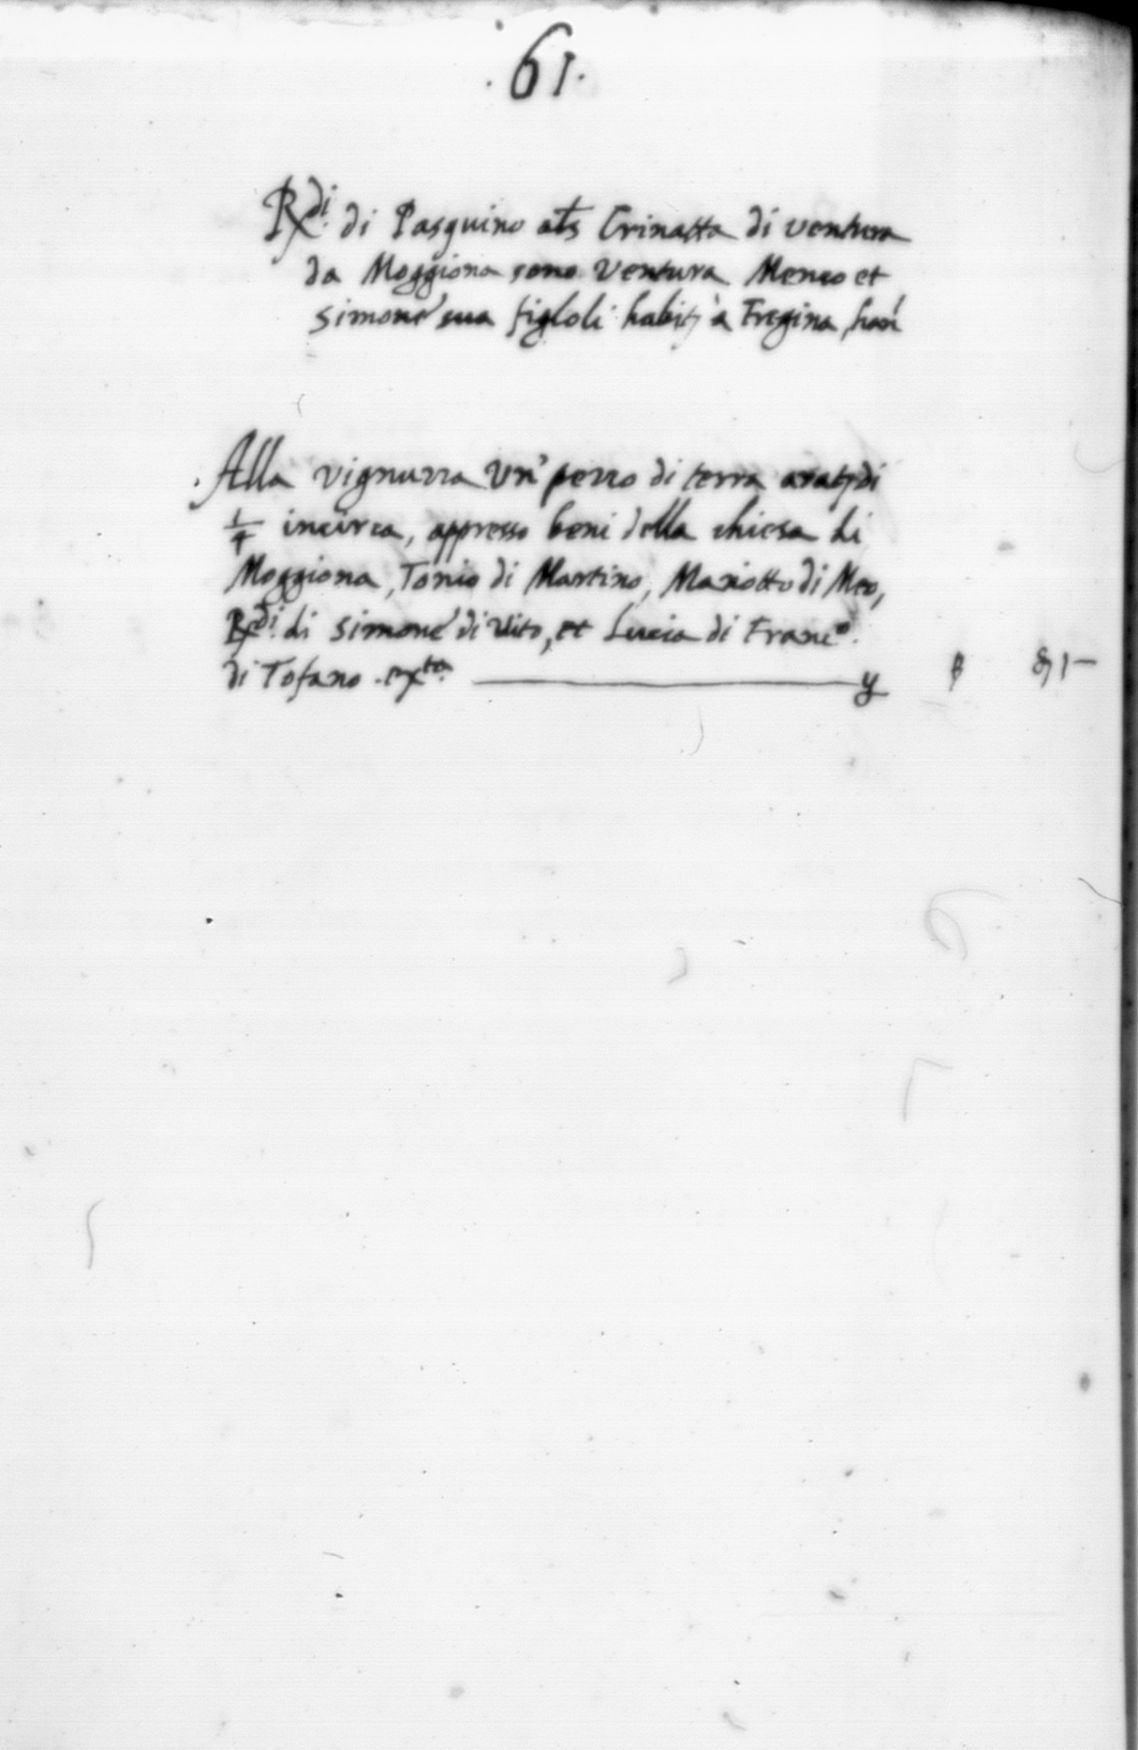 .61.
Rxdi di Pasquino als Crinatta di ventura
da Moggiona sono Ventura Menco et
simone sua figloli habitj à Fregina
Alla vignuzza Un' pezzo di terra aratj di
1/4 incirca, appresso beni della chiesa di
Moggiona, Tonio di Martino, Mariotto di Meo,
Rxdi di simone di Vito, et Lucia di Franco.
di Tofano